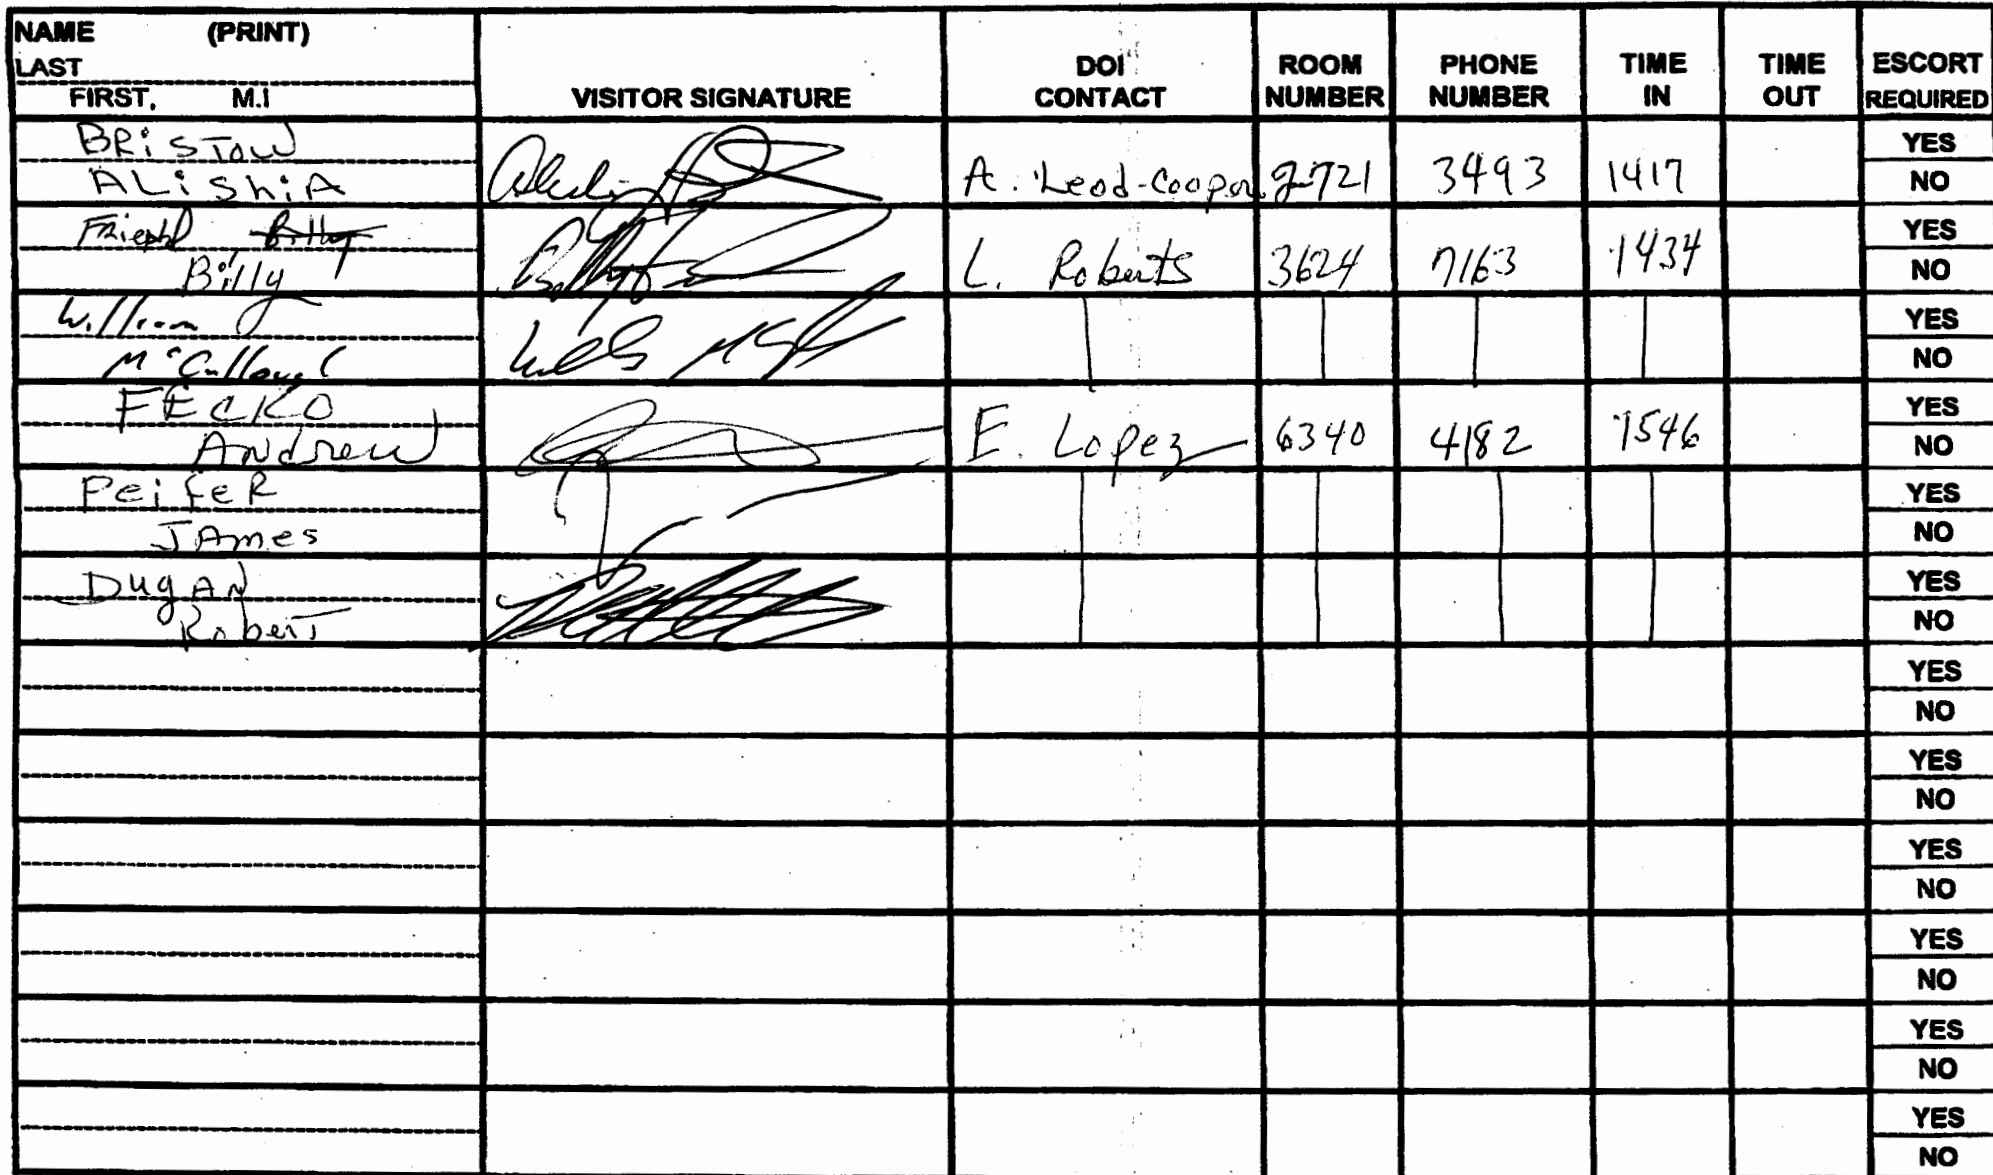 NAME (PRINT)
LAST
FIRST, M.I
VISITOR SIGNATURE
DOI CONTACT
ROOM NUMBER
PHONE NUMBER
TIME IN
TIME OUT
ESCORT REQUIRED
BRiSTOW
ALiShiA
A. Leod-Cooper 2721 3493 1417
YES
NO
Billy
L. Roberts 3624 7163 1434
YES
NO
William
McCullough
YES
NO
FECKO
Andrew
E. Lopez 6340 4182 1546
YES
NO
PeifeR
JAmes
YES
NO
DugAN
Robert
YES
NO
YES
NO
YES
NO
YES
NO
YES
NO
YES
NO
YES
NO